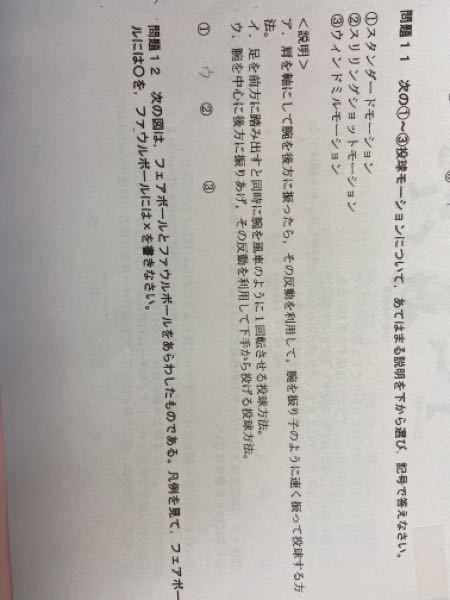 問題11　次の①～③投球モーションについて，あてはまる説明を下から選び，記号で答えなさい。
①スタンダードモーション
②スリリングショットモーション
③ウィンドミルモーション
＜説明＞
ア．肩を軸にして腕を後方に振ったら，その反動を利用して，腕を振り子のように速く振って投球する方
法。
イ．足を前方に踏み出すと同時に腕を風車のように１回転させる投球方法。
ウ．腕を中心に後方に振りあげ，その反動を利用して下手から投げる投球方法。
①　ウ　②　　　③
問題12　次の図は，フェアボールとファウルボールをあらわしたものである。凡例を見て，フェアボー
ルには○を，ファウルボールには×を書きなさい。